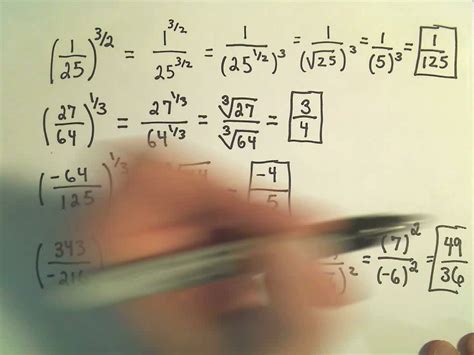 (1/25)^3/2 = 1^3/2 / 25^3/2 = 1 / (25^1/2)^3 = 1 / (√25)^3 = 1 / (5)^3 = 1/125
(27/64)^1/3 = 27^1/3 / 64^1/3 = ∛27 / ∛64 = 3/4
(-64/125)^1/3 -4/5
(343/-216 )^2 = (7)^2 / (-6)^2 = 49/36